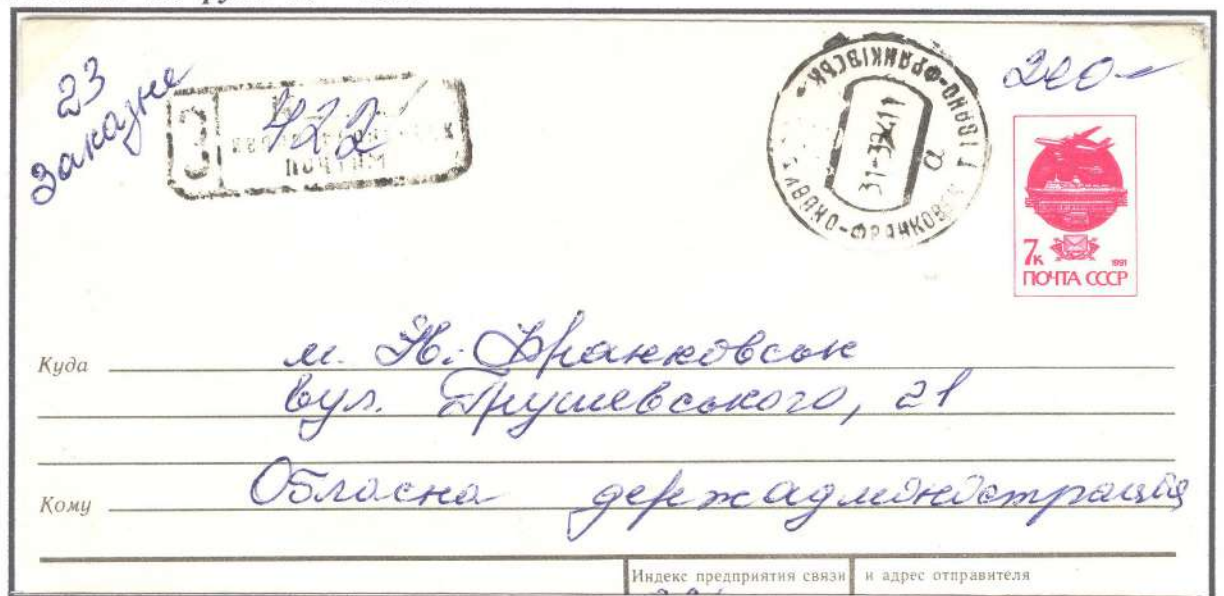 23
Заказне
З
422
почтамт
ІВАНО-ФРАНКІВСЬК
31-3
11
а
ИВАНО-ФРАНКОВСК
200-
7к
1991
ПОЧТА СССР
Куда м. Ів. Франковськ
вул. Грушевського, 21
Кому Обласна держадміністрація
Индекс предприятия связи и адрес отправителя